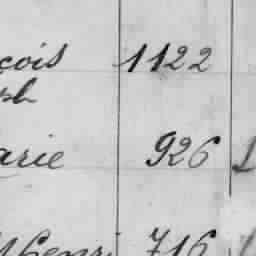 çois 1122
ph
arie 926
Henri 716